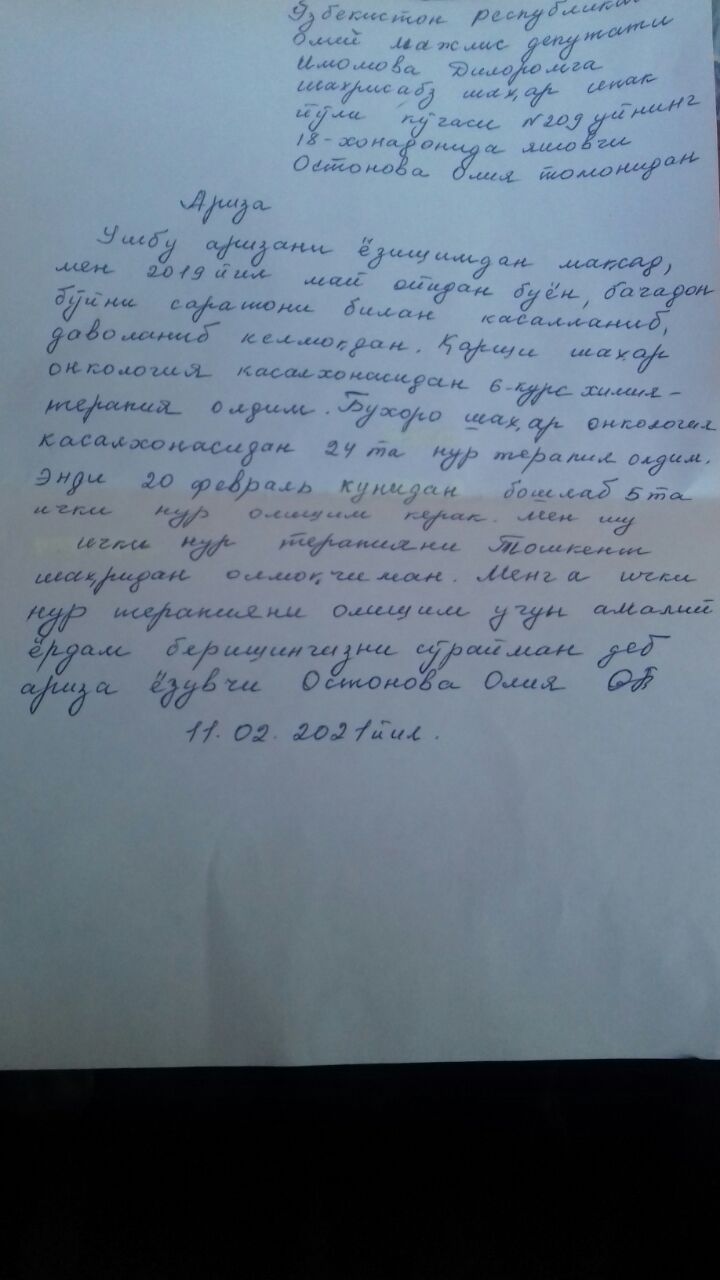 Ўзбекистон Республикаси
Олий мажлис депутати
Имомова Дилоромга
шахрисабз шаҳар ипак
йўли кўчаси N209 уйнинг
18-хонадонида яшовчи
Остонова Олия томонидан
Ариза
Ушбу аризани ёзищимдан мақсад,
мен 2019 йил май ойидан буён, бачадон
бўйни саратони билан касалланиб,
даволаниб келмоқдан. Қарщи шаҳар
онкология касалхонасидан 6-курс химия-
терапия олдим. Бухоро шаҳар онкология
касалхонасидан 24 та нур терапия олдим.
Энди 20 февраль кунидан бошлаб 5 та
ички нур олищим керак. Мен шу
ички нур терапияни Тошкент
шаҳридан олмоқчиман. Менга ички
нур терапияни олищим учун амалий
ёрдам берищингизни сўрайман деб
ариза ёзувчи Остонова Олия
11.02.2021йил.